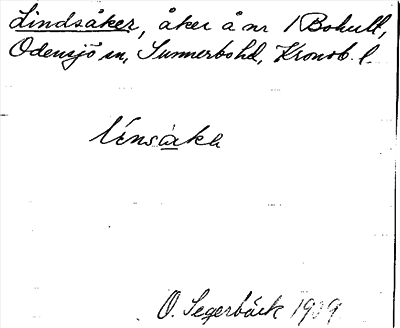 Lindsåker, åker å nr 1 Bohult,
Odensjö sn, Sunnerbo hd, Kronob. l.
O. Segerbäck 1909